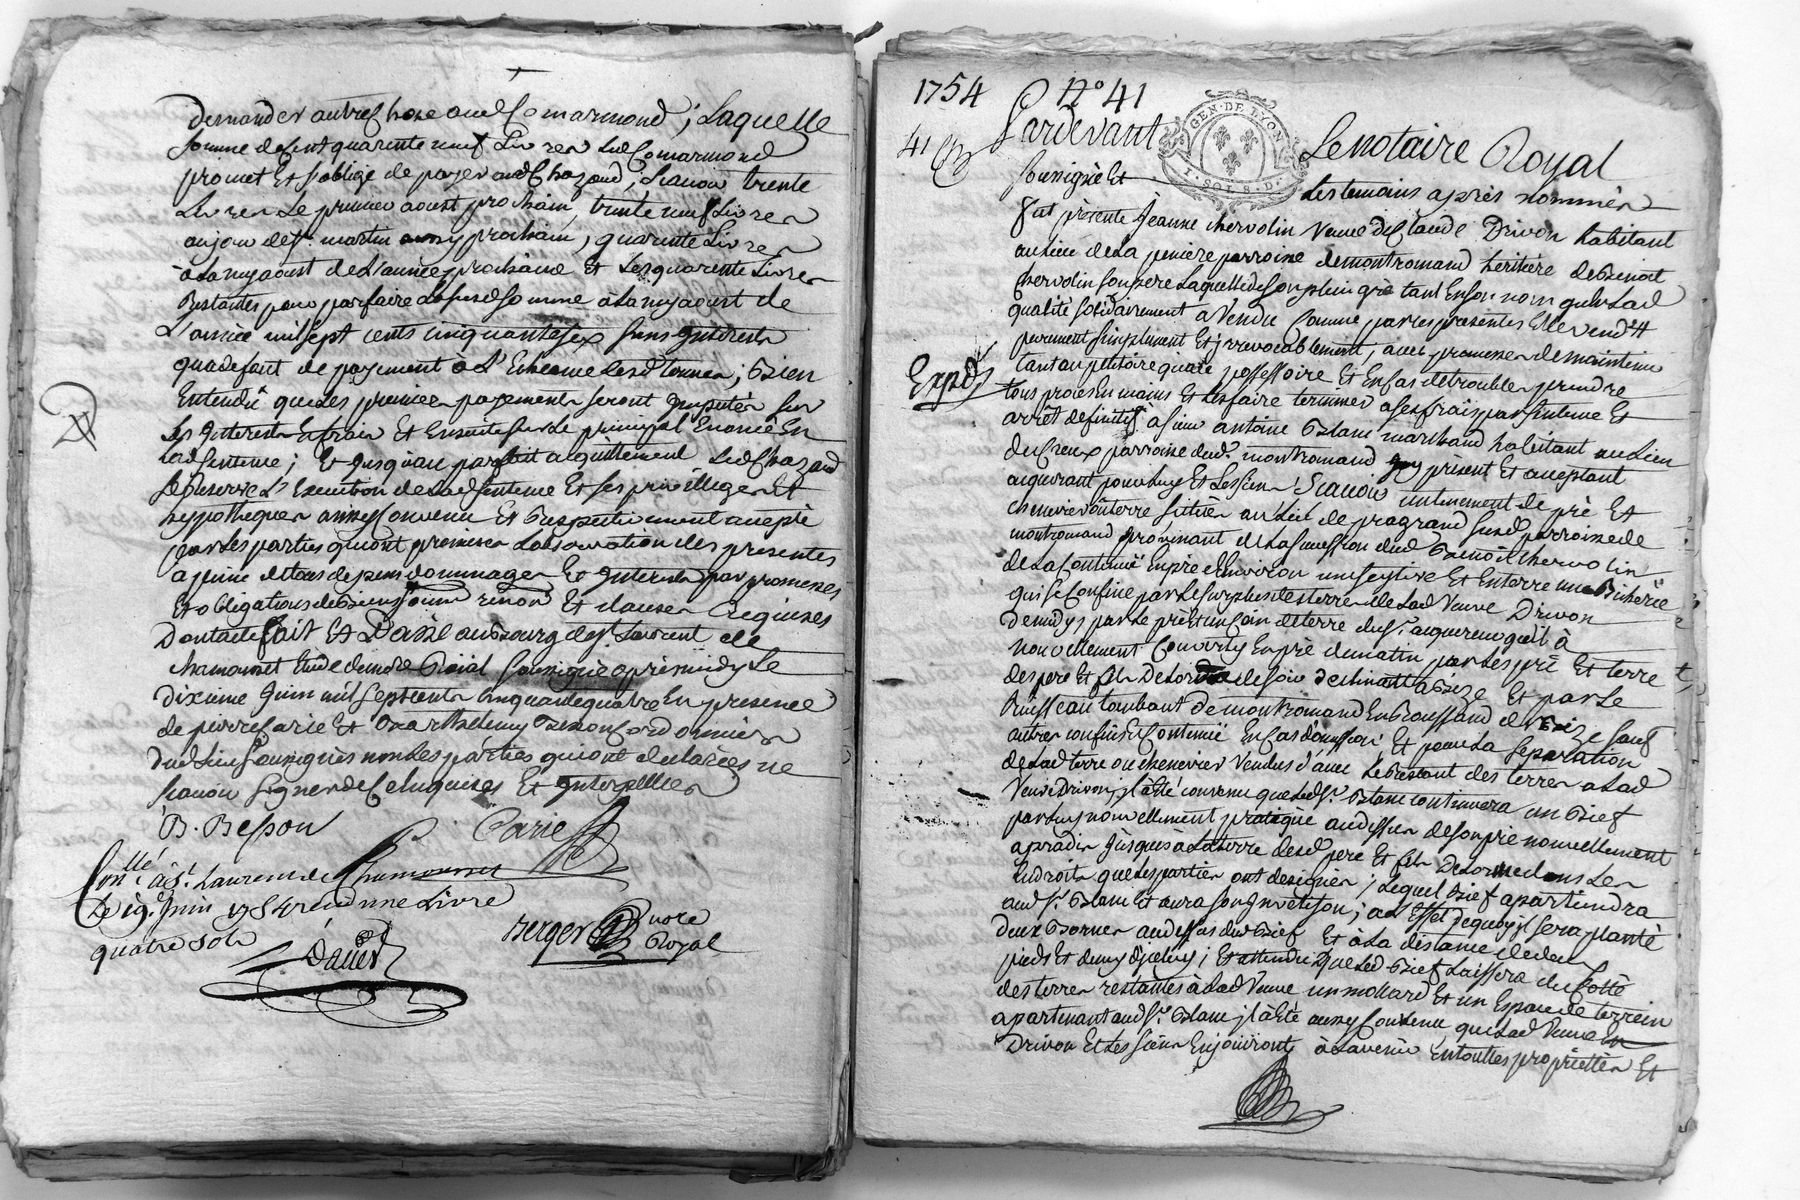 demander autre chose aud Comarmond ; Laquelle
somme de Cent quarante neuf Livres led Comarmond
promet Et s'oblige de payer aud Chazaud, Scavoir trente
Livres le premier aoust prochain, trente neuf Livres
au jour de st. martin aussy prochain, quarante Livres
à la my aoust de L'année prochaine Et Les quarante Livres
Restantes pour parfaire lad somme à la my aoust de
L'année mil sept cents cinquante six sans Interests
qu'a defaut de payement à L'Echeance desd termes ; Bien
Entendu que les premiers payements seront Imputés sur
les Interests Et frais Et Ensuite sur le principal Enoncé En
lad sentence ; Et jusqu'au parfait acquittement led Chazaud
se Reserve L'Execution de lad sentence Et ses privilleges Et
hypotheques ainsy Convenu Et Respectivement accepté
par les parties qui ont promis L'observation des presentes
a peine de tous depens dommages Et Interests par promesses
Et obligations de Biens soum renon Et clauses Requises
Dont acte fait Et Passé au Bourg de st Laurent de
chamousset Etude dunore Roïal soussigné après midy le
dixieme Juin mil sept cents cinquante quatre En presence
de pierre Carie Et Barthelemy Besson Cordonniers
dud Lieu soussignés non Les parties qui ont declarées ne
scavoir signer de Ce Enquises Et Interpellées
B. Besson Carie
Conllé. à st. Laurent de Chamousset
Le 19. Juin 1754 reçu une Livre
quatre sols
Berger nore
Royal
1754 No 41
41
Pardevant Le notaire Royal
GEN. DE LYON
1. SOL 8. D.
soussigné Et Les temoins après nommés
fut présente Jeanne chervolin Veuve de Claude Drivon habitant
au lieu de la perroisse de montromand heritière de Benoit
chervolin son pere Laquelle de son plein gré tant En son nom qu'En lad
qualité solidairement a Vendu Comme par ces presentes Elle vend
purement simplement Et Irrevocablement, avec promesses de maintenir
Expéd
tant au petitoire que au possessoire Et En Cas de trouble prendre
tous procès En mains Et Les faire terminer à ses frais par sentence Et
arrêt definitif à sieur antoine Blanc marchand habitant au lieu
du Creux parroisse dud. montromand Icy présent Et acceptant
acquerant pour luy Et Les siens, Scavoir un tenement de pré Et
chenevier ou terre situés au lieu de pragrand susd parroisse de
montromand provenant de La succession dud Benoit chervolin
de La Contenuë En pré d'Environ une seytive Et En terre une Bicherée
qui se Confine par Le surplus des terres de Lad Veuve Drivon
de midy par Le pré Et un coin de terre du sr. acquereur qu'il à
nouvellement Converty En pré de matin par Les pré Et terre
des pere Et fils Delorme de soir declinant à Bize Et par Le
Ruisseau tombant de montromand En Broussand de Bize sauf
autres confins Et Contenuë En Cas d'omission Et pour La separation
de Lad terre ou chenevier Vendus d'avec Le Restant des terres a Lad
Veuve Drivon, Il à été convenu que Led sr. Blanc continuera un Bief
par Luy nouvellement pratiqué au dessus de son pré nouvellement
apradi Jusques à La terre desd pere Et fils Delorme dans Les
Endroits que Les parties ont designés ; Lequel Bief apartiendra
aud sr. Blanc Et aura son Invetison ; a L'Effet de quoy Il sera planté
deux Bornes au dessus dud Bief Et à La distance de deux
pieds Et demy d'Icelluy ; Et attendu que Led Bief Laissera du Cotté
des terres restantes à Lad Veuve un mollard Et un Espace de terrein
apartenant aud sr. Blanc Il à Eté aussy Convenu que Lad Veuve
Drivon Et Les siens En jouiront à L'avenir En touttes proprietés Et